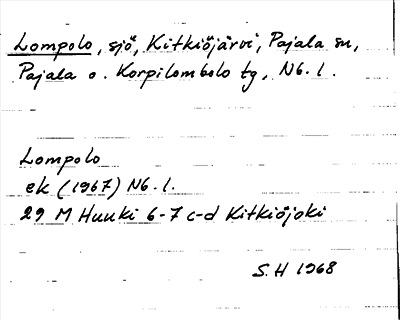 Lompolo, sjö, Kitkiöjärvi, Pajala sn,
Pajala o. Korpilombolo tg, Nb. l.
Lompolo
ek (1967) Nb. l.
29 M Huuki 6-7 c-d Kitkiöjoki
S.H 1968